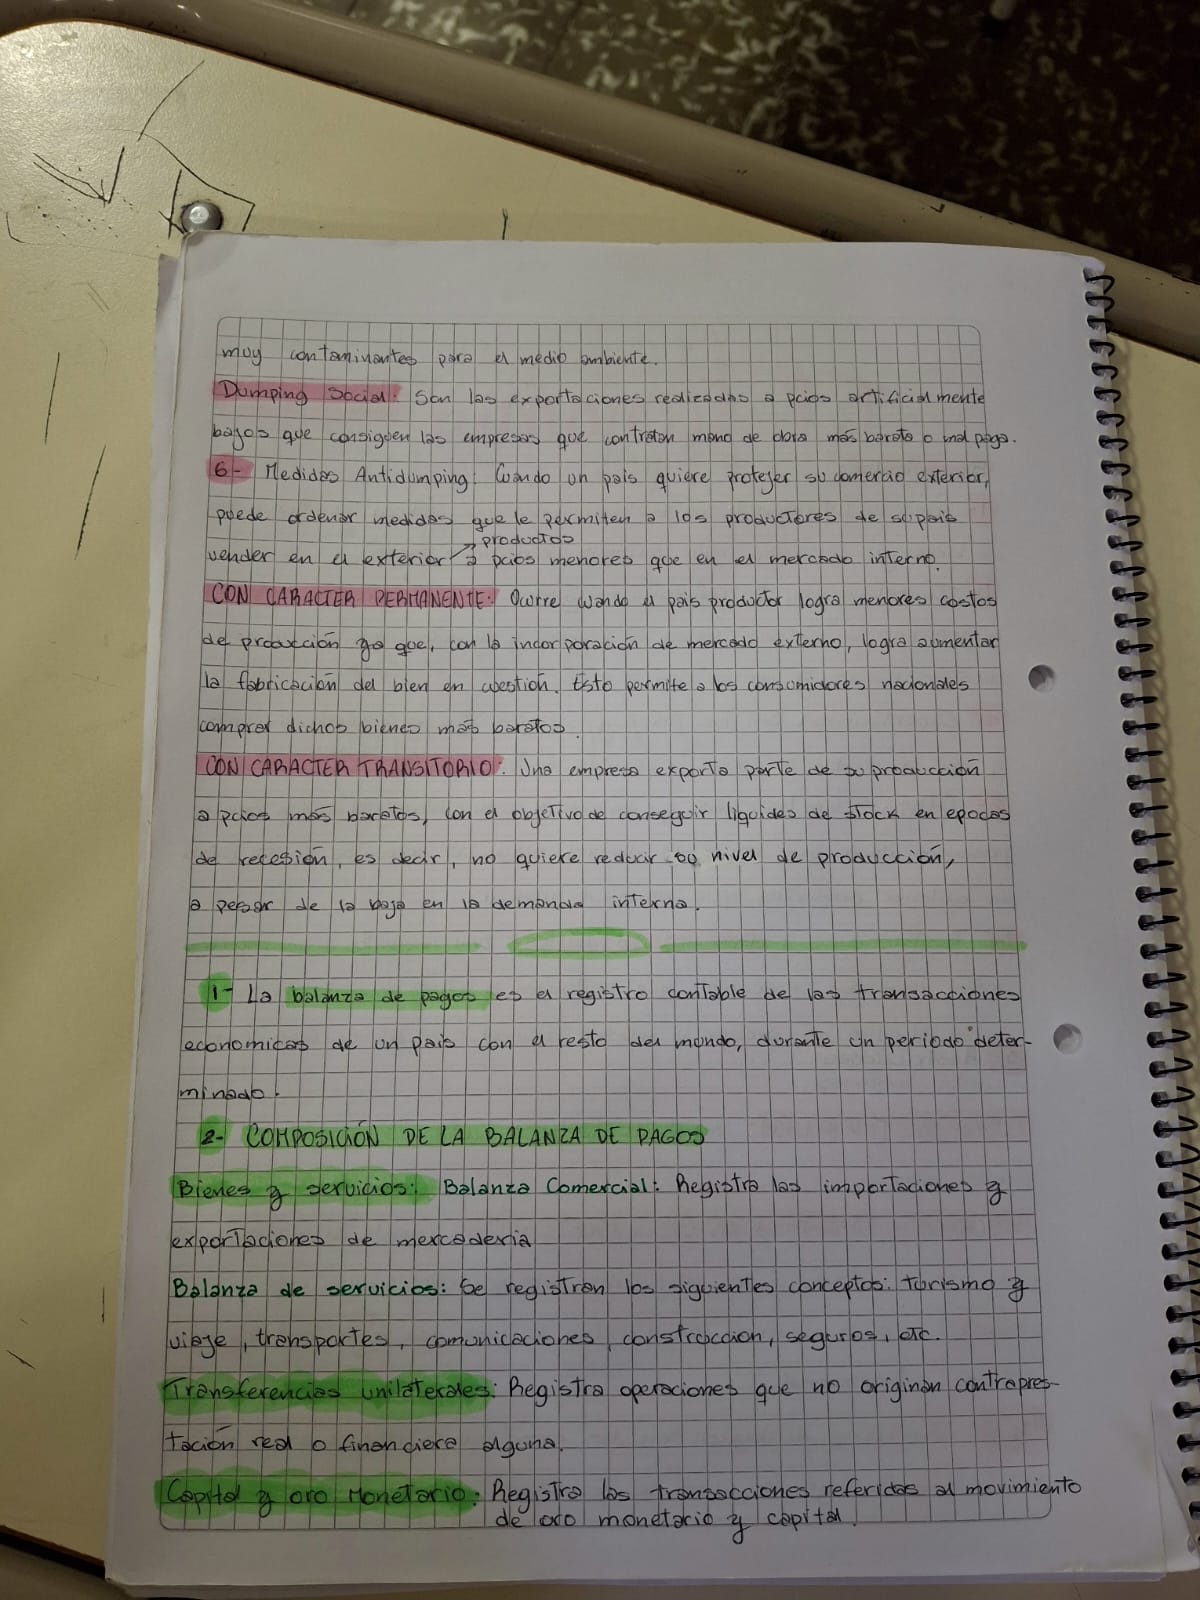 muy contaminantes para el medio ambiente.
Dumping Social: Son las exportaciones realizadas a pcios artificialmente
bajos que consiguen las empresas que contratan mano de obra más barata o mal paga.
6- Medidas Antidumping: Cuando un pais quiere protejer su comercio exterior,
puede ordenar medidas que le permiten a los productores de su pais
productos
vender en el exterior → a pcios menores que en el mercado interno.
CON CARACTER PERMANENTE: Ocurre cuando el pais productor logra menores costos
de producción ya que, con la incorporación de mercado externo, logra aumentar
la fabricación del bien en cuestion. Esto permite a los consumidores nacionales
comprar dichos bienes más baratos.
CON CARACTER TRANSITORIO: Una empresa exporta parte de su producción
a pcios más baratos, con el objetivo de conseguir liquides de stock en epocas
de recesión, es decir, no quiere reducir su nivel de producción,
a pesar de la baja en la demanda interna.
1- La balanza de pagos es el registro contable de las transacciones
economicas de un pais con el resto del mundo, durante un periodo deter-
minado.
2- COMPOSICIÓN DE LA BALANZA DE PAGOS
Bienes y servicios: Balanza Comercial: Registra las importaciones y
exportaciones de mercaderia
Balanza de servicios: Se registran los siguientes conceptos: turismo y
viaje, transportes, comunicaciones, construccion, seguros, etc.
Transferencias unilaterales: Registra operaciones que no originan contrapres-
tación real o financiera alguna.
Capital y oro Monetario: Registra las transacciones referidas al movimiento
de oro monetario y capital.